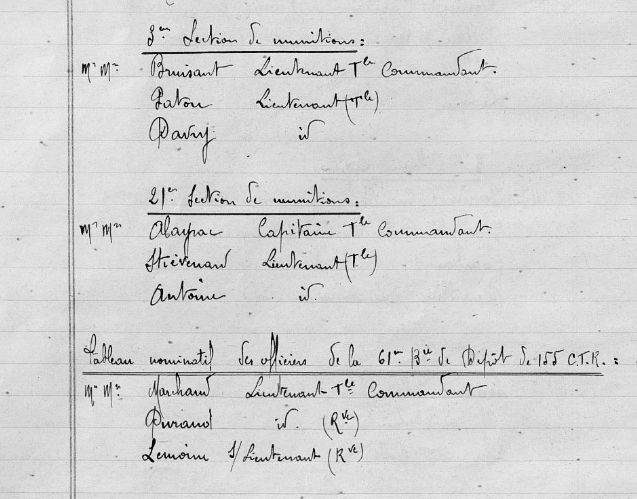 3me Section de munitions:
Mrs Mrs Bruisant Lieutenant Tle Commandant.
Paton Lieutenant (Tle)
Davry id
21me Section de munitions:
Mrs Mrs Abayrac Capitaine Tle Commandant.
Stiévenard Lieutenant (Tle)
Antoine id.
Tableau nominatif des officiers de la 61me Bie de Dépôt de 155 C.T.R.:
Mrs Mrs Marchand Lieutenant Tle Commandant
Durand id. (Rve)
Lemoine S/Lieutenant (Rve)